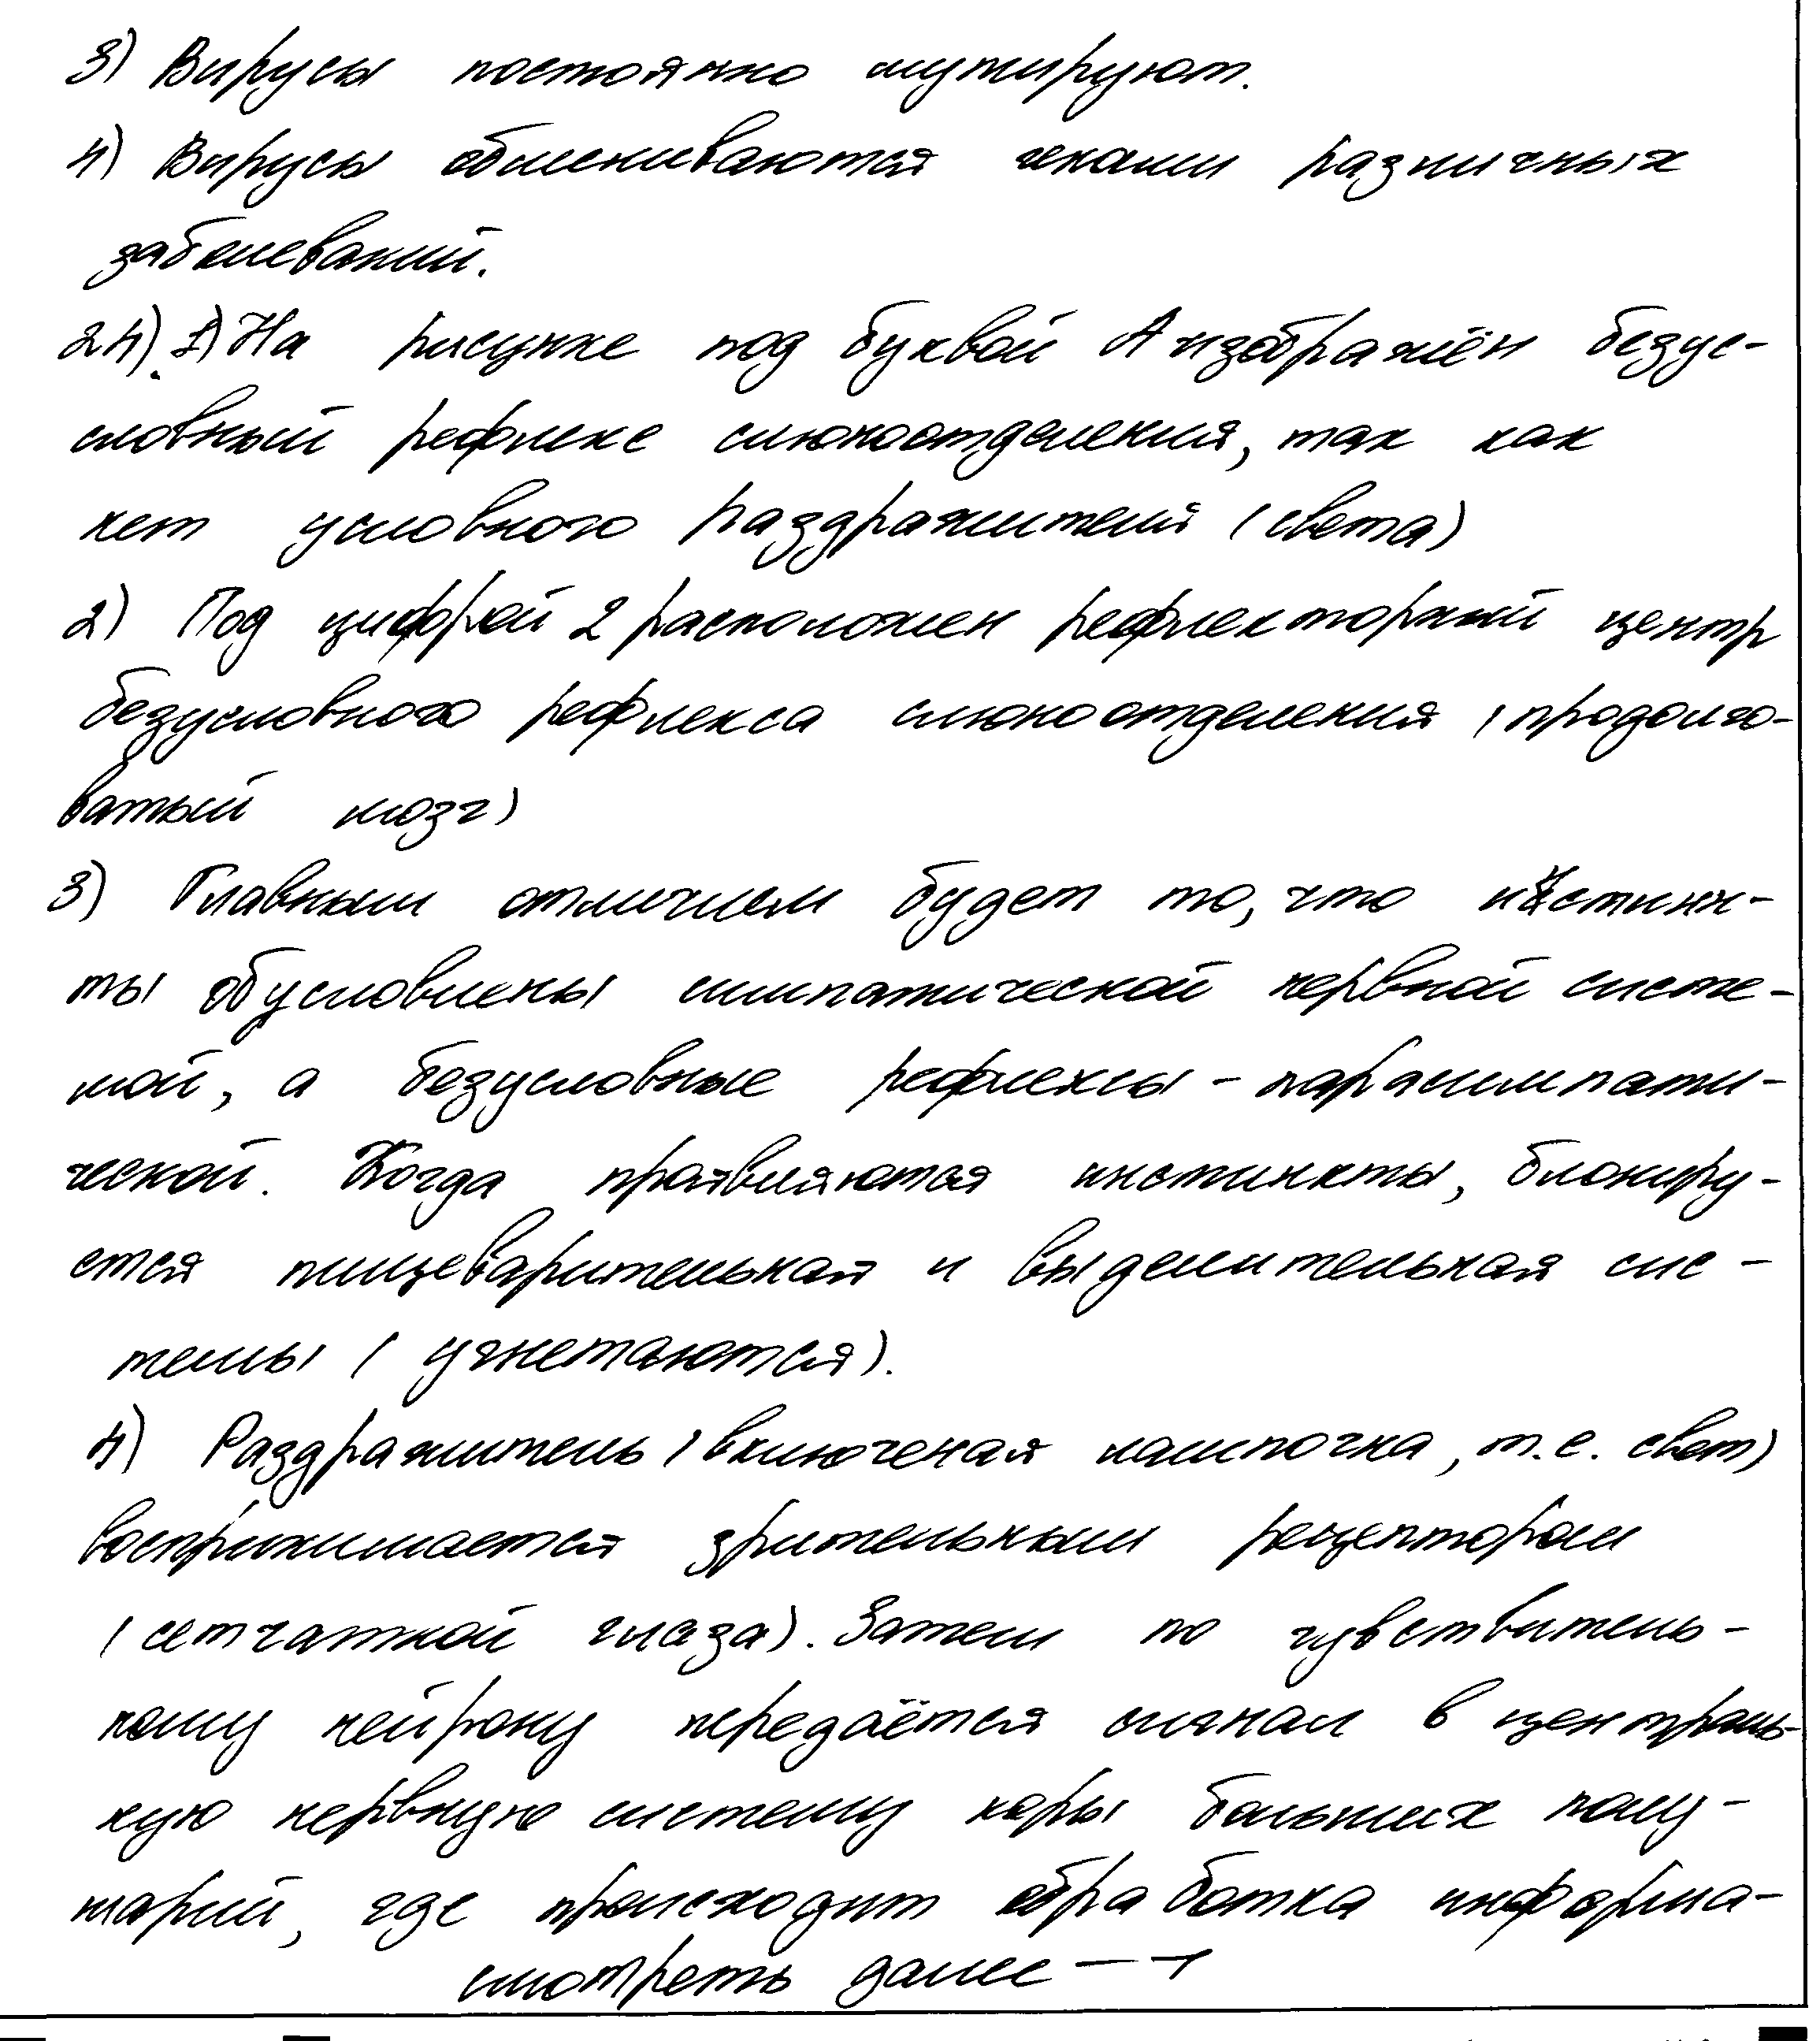 3) Вирусы постоянно мутируют.
4) Вирусы обмениваются генами различных
заболеваний.
24) 1) На рисунке под буквой А изображён безус-
ловный рефлекс слюноотделения, так как
нет условного раздражителя (света)
2) Под цифрой 2 расположен рефлекторный центр
безусловного рефлекса слюноотделения (продолго-
ватый мозг)
3) Главным отличием будет то, что инстинк-
ты обусловлены симпатической нервной систе-
мой, а безусловные рефлексы - парасимпати-
ческой. Когда проявляются инстинкты, блокиру-
ется пищеварительная и выделительная сис-
темы (угнетаются).
4) Раздражитель (включеная лампочка, т.е. свет)
воспринимается зрительным рецептором
(сетчаткой глаза). Затем по чувствитель-
ному нейрону передаётся сигнал в централь-
ную нервную систему коры больших полу-
шарий, где происходит обработка информа-
смотреть далее →